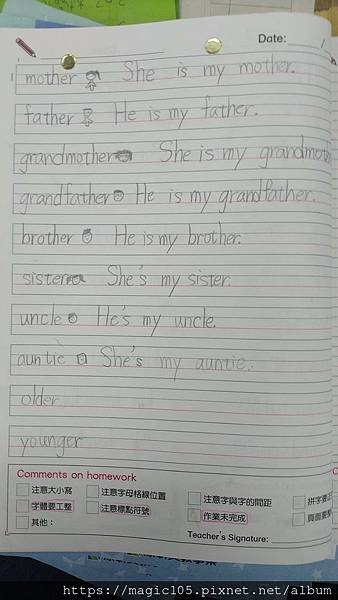 Date:
1 mother She is my mother.
father He is my father.
grandmother She is my grandmother
grandfather He is my grandfather.
brother He is my brother.
sister She's my sister.
uncle He's my uncle.
auntie She's my auntie.
older
younger
Comments on homework
注意大小寫 注意字母格線位置 注意字與字的間距
字體要工整 注意標點符號 作業未完成
其他：
Teacher's Signature:
https://magic105.pixnet.net/album